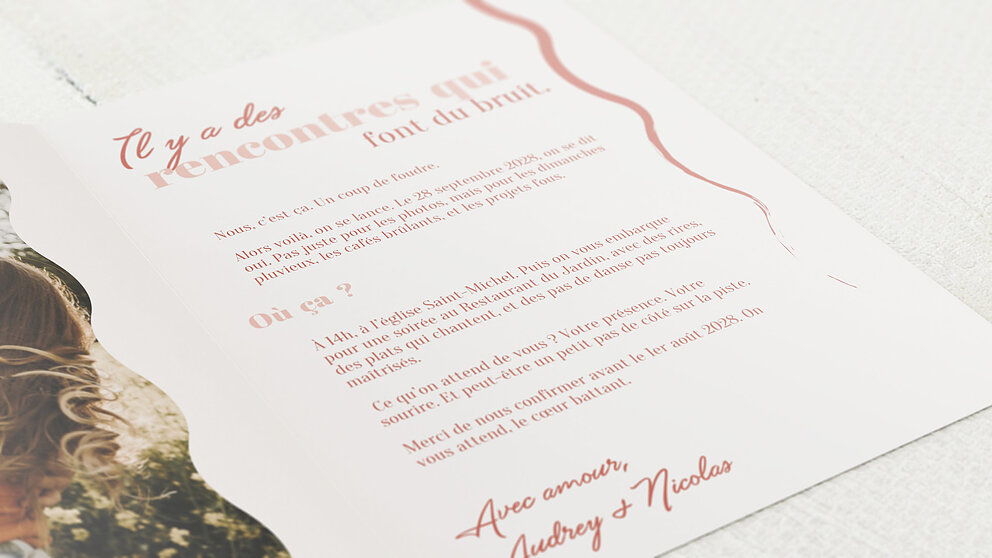 Il y a des
rencontres qui
font du bruit.
Nous, c'est ça. Un coup de foudre.
Alors voilà, on se lance. Le 28 septembre 2028, on se dit
oui. Pas juste pour les photos, mais pour les dimanches
pluvieux, les cafés brûlants, et les projets fous.
Où ça ?
À 14h, à l'église Saint-Michel. Puis on vous embarque
pour une soirée au Restaurant du Jardin, avec des rires,
des plats qui chantent, et des pas de danse pas toujours
maîtrisés.
Ce qu'on attend de vous ? Votre présence. Votre
sourire. Et peut-être un petit pas de côté sur la piste.
Merci de nous confirmer avant le 1er août 2028. On
vous attend, le cœur battant.
Avec amour,
Audrey & Nicolas